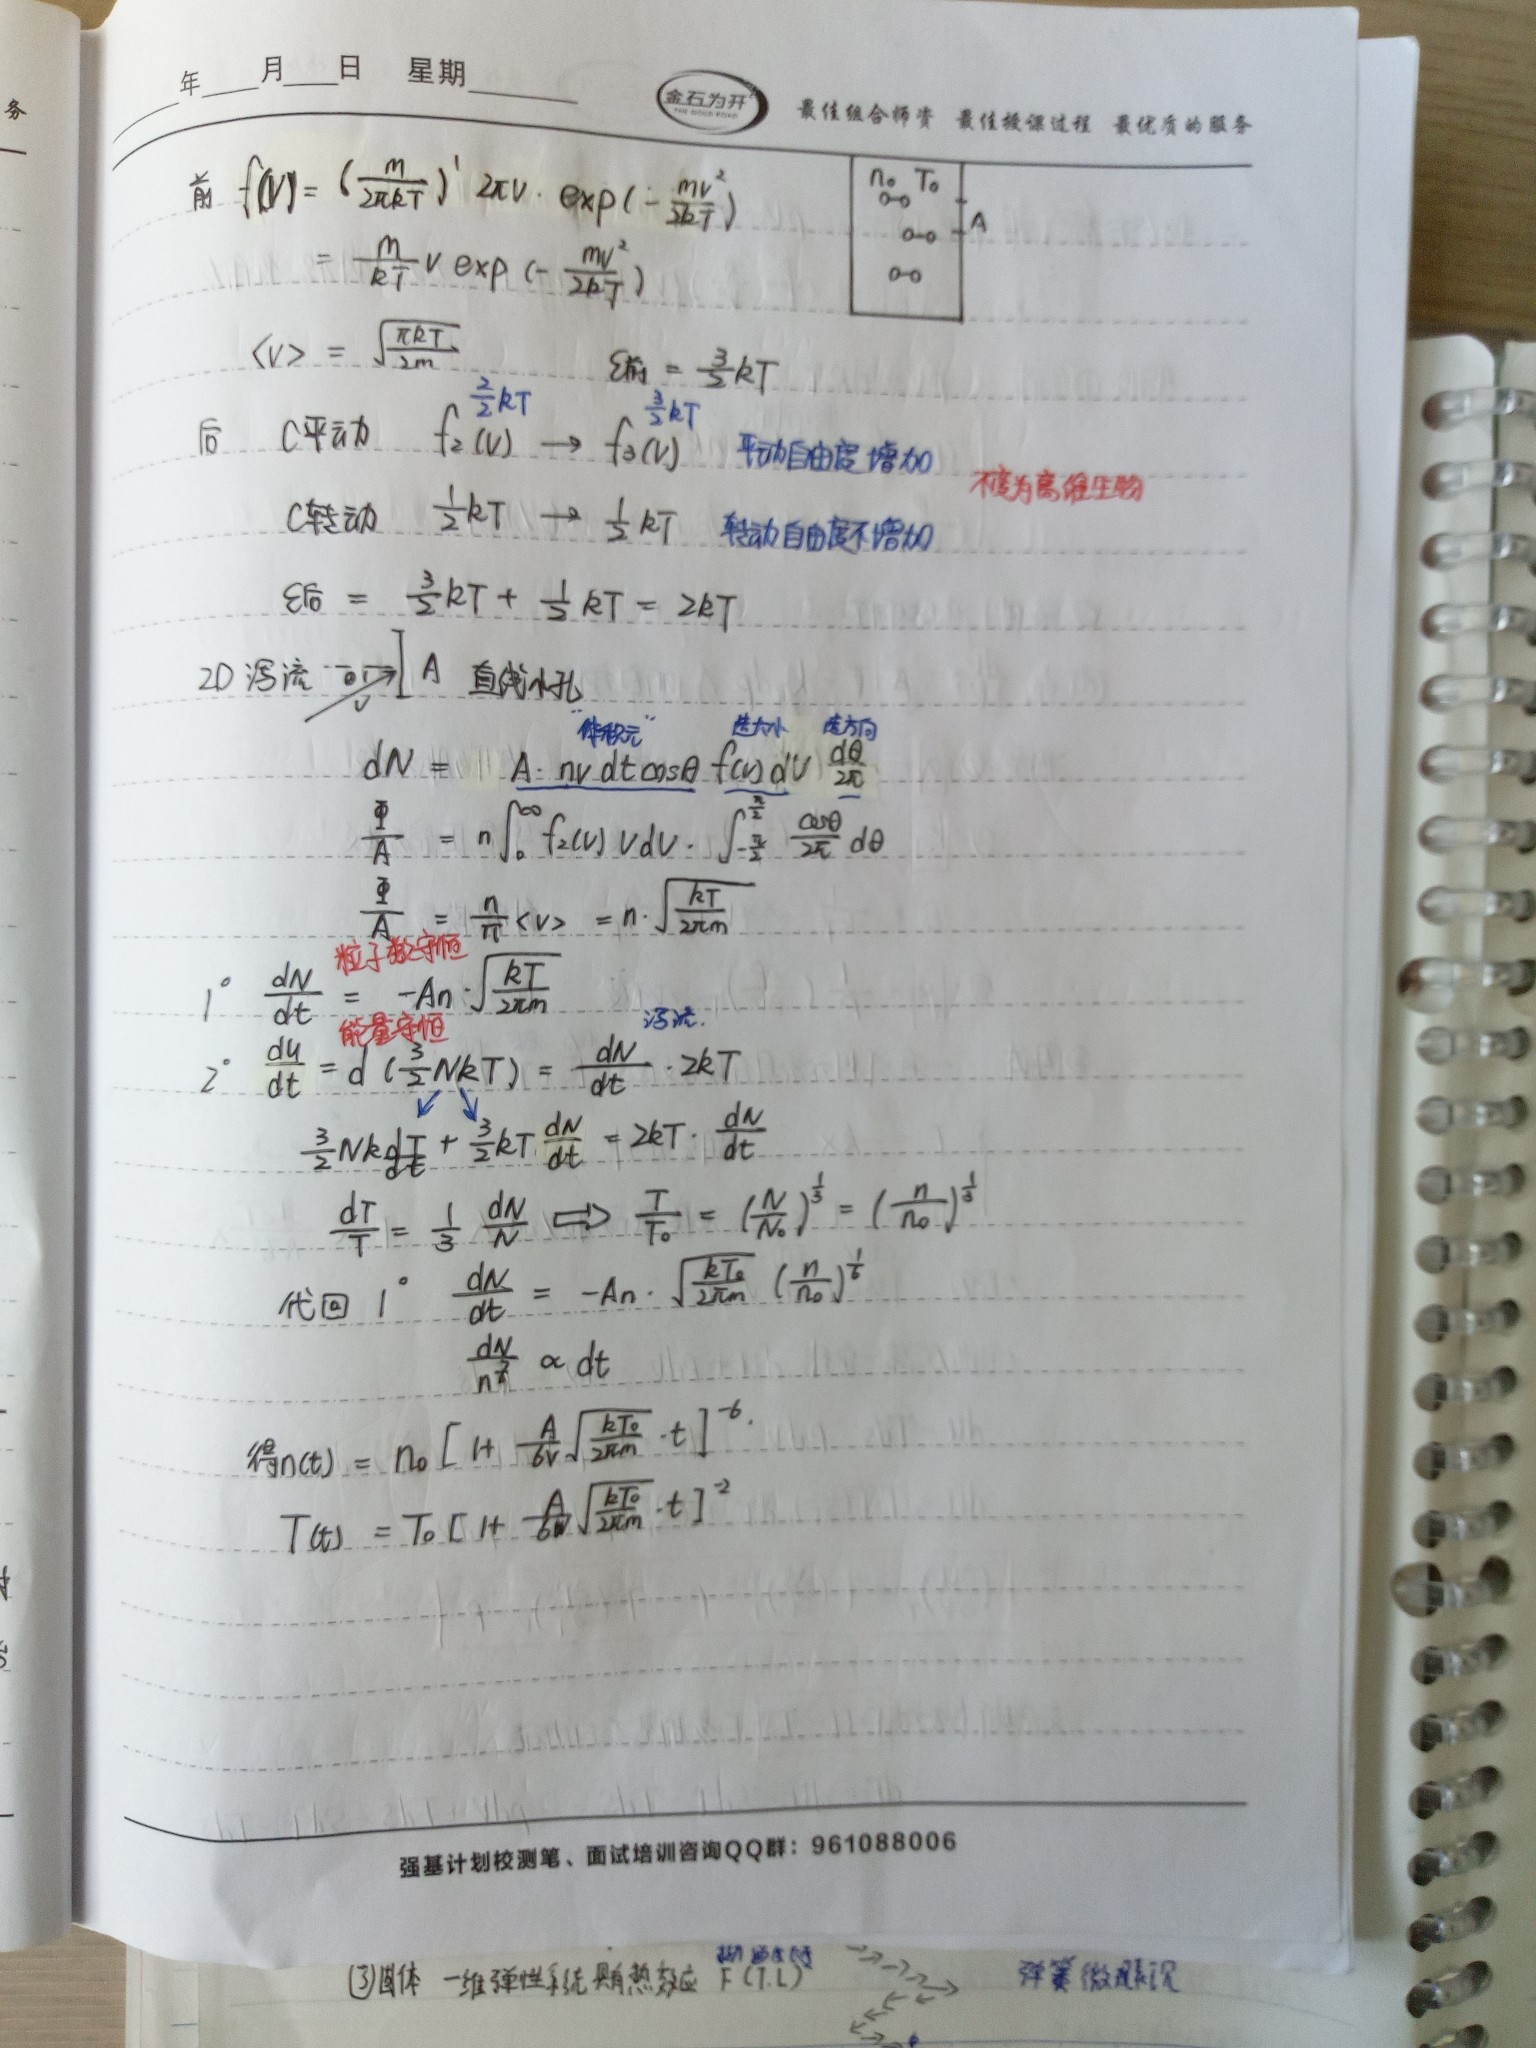 务
年 月 日 星期
金石为开
THE GOLD ROAD
最佳组合师资 最佳授课过程 最优质的服务
前 f(v) = (m/2πkT)^1 2πv · exp(-mv²/2kT)
n₀ T₀
A
= m/kT v exp(-mv²/2kT)
<v> = √(πkT/2m) ε前 = 3/2 kT
2/2 kT 3/2 kT
后 C平动 f₂(v) → f₃(v) 平动自由度增加
不变为高维生物
C转动 1/2 kT → 1/2 kT 转动自由度不增加
ε后 = 3/2 kT + 1/2 kT = 2kT
2D 泻流 v A 直线小孔
"体积元" 选大小 选方向
dN = A · nv dt cosθ f(v) dv dθ/2π
Φ/A = n∫₀^∞ f₂(v) v dv · ∫_{-π/2}^{π/2} cosθ/2π dθ
Φ/A = n/π <v> = n · √(kT/2πm)
粒子数守恒
1° dN/dt = -An · √(kT/2πm)
能量守恒 泻流.
2° du/dt = d(3/2 NkT) = dN/dt · 2kT
3/2 Nk dT/dt + 3/2 kT dN/dt = 2kT · dN/dt
dT/T = 1/3 dN/N ⇒ T/T₀ = (N/N₀)^{1/3} = (n/n₀)^{1/3}
代回 1° dN/dt = -An · √(kT₀/2πm) (n/n₀)^{1/6}
dN/n^{7/6} ∝ dt
得n(t) = n₀ [1 + A/6V √(kT₀/2πm) · t]^{-6}.
T(t) = T₀ [1 + A/6V √(kT₀/2πm) · t]^{-2}
强基计划校测笔、面试培训咨询QQ群：961088006
(3)固体 一维弹性系统具有热效应 F(T.L) 弹簧微观表现